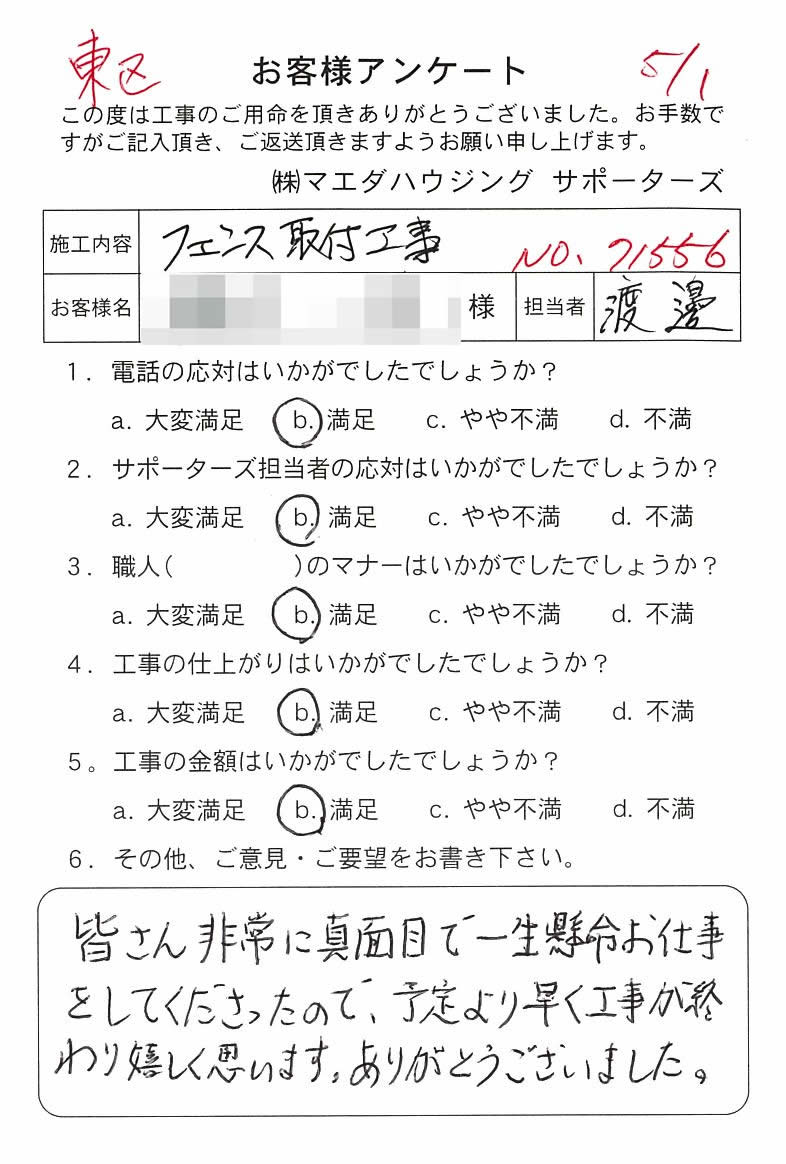 東区 お客様アンケート 5/1
この度は工事のご用命を頂きありがとうございました。お手数で
すがご記入頂き、ご返送頂きますようお願い申し上げます。
㈱マエダハウジング サポーターズ
施工内容 フェンス取付工事 NO、71556
お客様名 様 担当者 渡邊
1．電話の応対はいかがでしたでしょうか？
a. 大変満足 b. 満足 c. やや不満 d. 不満
2．サポーターズ担当者の応対はいかがでしたでしょうか？
a. 大変満足 b. 満足 c. やや不満 d. 不満
3．職人( )のマナーはいかがでしたでしょうか？
a. 大変満足 b. 満足 c. やや不満 d. 不満
4．工事の仕上がりはいかがでしたでしょうか？
a. 大変満足 b. 満足 c. やや不満 d. 不満
5。工事の金額はいかがでしたでしょうか？
a. 大変満足 b. 満足 c. やや不満 d. 不満
6．その他、ご意見・ご要望をお書き下さい。
皆さん非常に真面目で一生懸命お仕事
をしてくださったので、予定より早く工事が終
わり嬉しく思います。ありがとうございました。